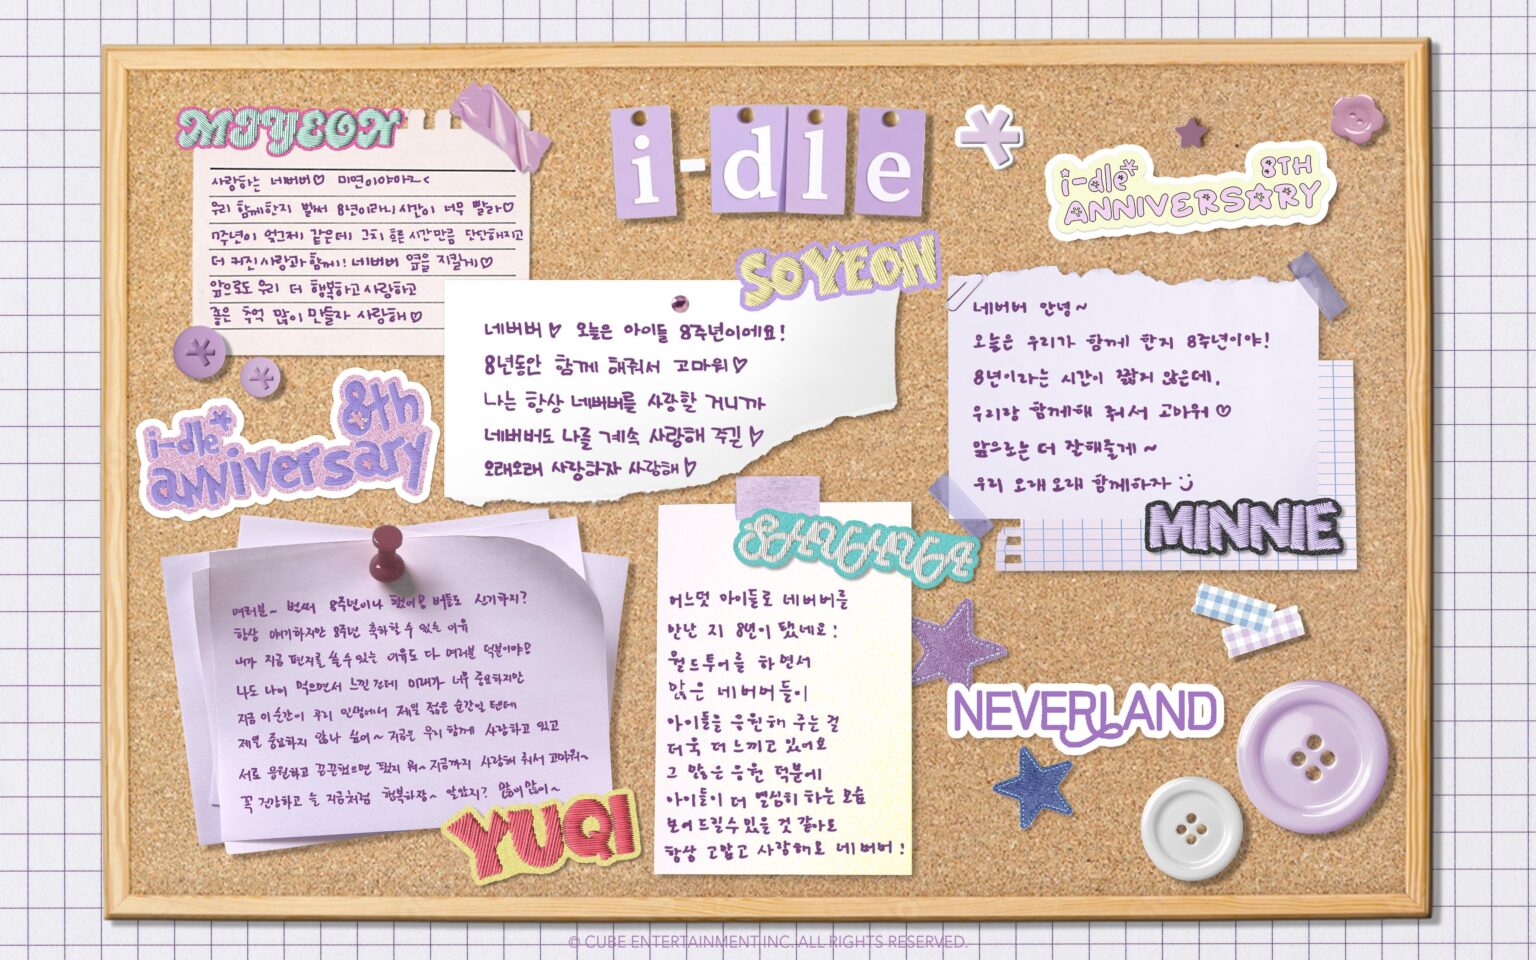 MIYEON
사랑하는 네버버♡ 미연이야아~<
우리 함께한지 벌써 8년이라니 시간이 너무 빨라♡
7주년이 엊그제 같은데 그치 흐른 시간만큼 단단해지고
더 커진 사랑과 함께! 네버버 옆을 지킬게♡
앞으로도 우리 더 행복하고 사랑하고
좋은 추억 많이 만들자 사랑해♡
i-dle
i-dle* 8TH
ANNIVERSARY
SOYEON
네버버♡ 오늘은 아이들 8주년이에요!
8년동안 함께 해줘서 고마워♡
나는 항상 네버버를 사랑할 거니까
네버버도 나를 계속 사랑해 주길♡
오래오래 사랑하자 사랑해♡
네버버 안녕~
오늘은 우리가 함께 한지 8주년이야!
8년이라는 시간이 짧지 않은데,
우리랑 함께해 줘서 고마워♡
앞으로는 더 잘해줄게~
우리 오래오래 함께하자
MINNIE
i-dle* 8th
anniversary
여러분~ 벌써 8주년이나 됐어! 버들도 신기하지?
항상 얘기하지만 8주년 축하할 수 있는 이유
내가 지금 편지를 쓸 수 있는 이유도 다 여러분 덕분이야!
나도 나이 먹으면서 느낀 건데 미래가 너무 중요하지만
지금 이 순간이 우리 인생에서 제일 젊은 순간일 텐데
제일 중요하지 않나 싶어~ 지금은 우리 함께 사랑하고 있고
서로 응원하고 끈끈했으면 됐지 뭐~ 지금까지 사랑해 줘서 고마워~
꼭 건강하고 늘 지금처럼 행복하장~ 알았지? 많이 많이~
YUQI
SHUHUA
어느덧 아이들로 네버버를
만난 지 8년이 됐네요!
월드투어를 하면서
많은 네버버들이
아이들을 응원해 주는 걸
더욱 더 느끼고 있어요
그 많은 응원 덕분에
아이들이 더 열심히 하는 모습
보여드릴 수 있을 것 같아요
항상 고맙고 사랑해요 네버버!
NEVERLAND
© CUBE ENTERTAINMENT INC. ALL RIGHTS RESERVED.